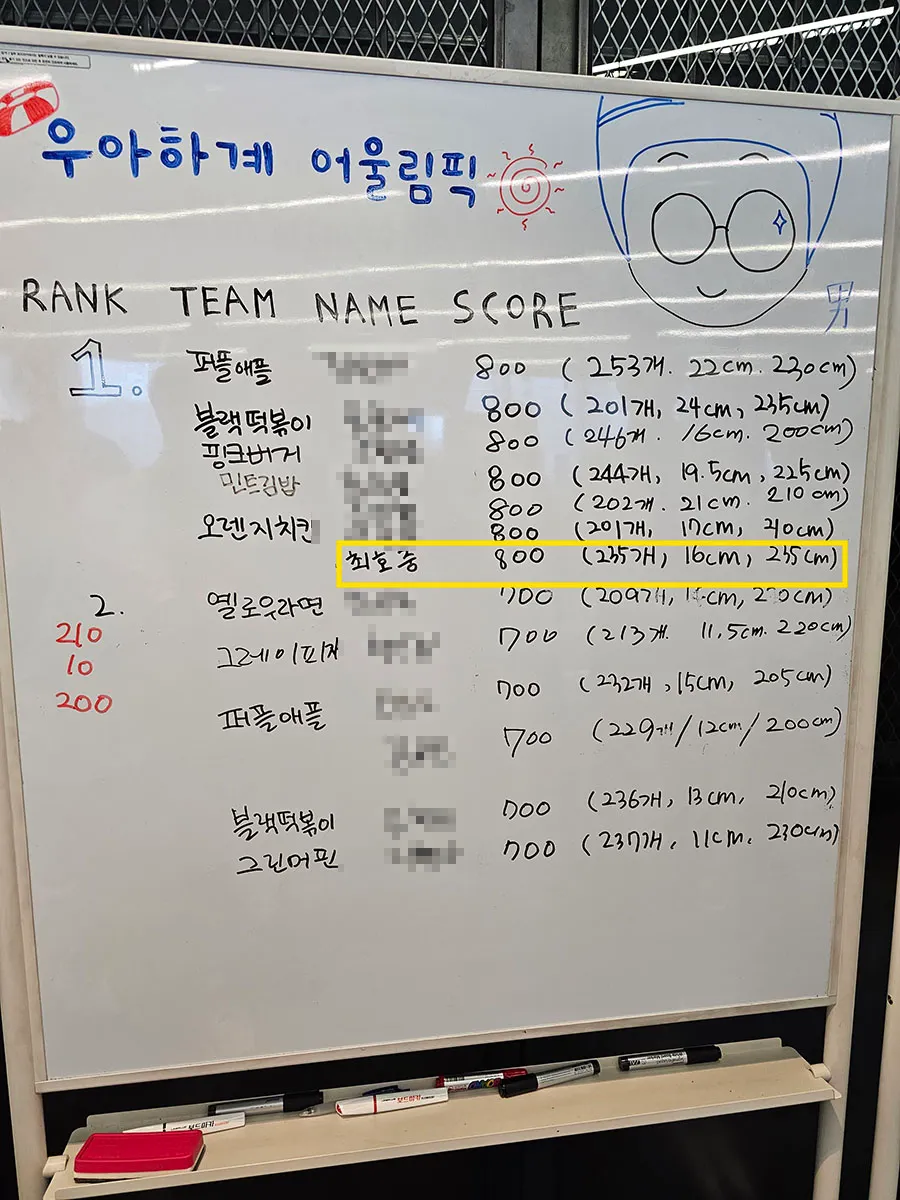 우아하계 어울림픽
男
RANK TEAM NAME SCORE
1. 퍼플애플 800 (253개. 22cm. 230cm)
블랙떡볶이 800 (201개, 24cm, 235cm)
핑크버거 800 (246개. 16cm. 200cm)
민트김밥 800 (244개, 19.5cm, 225cm)
800 (202개. 21cm. 210cm)
오렌지치킨 800 (201개, 17cm, 210cm)
최호중 800 (235개, 16cm, 235cm)
2. 옐로우라면 700 (209개,
210
10
200
그레이피자 700 (213개. 11.5cm. 220cm)
700 (232개, 15cm, 205cm)
퍼플애플
700 (229개/12cm/200cm)
블랙떡볶이 700 (236개, 13cm, 210cm)
그린머핀 700 (237개, 11cm, 230cm)
보드마카
보드마카